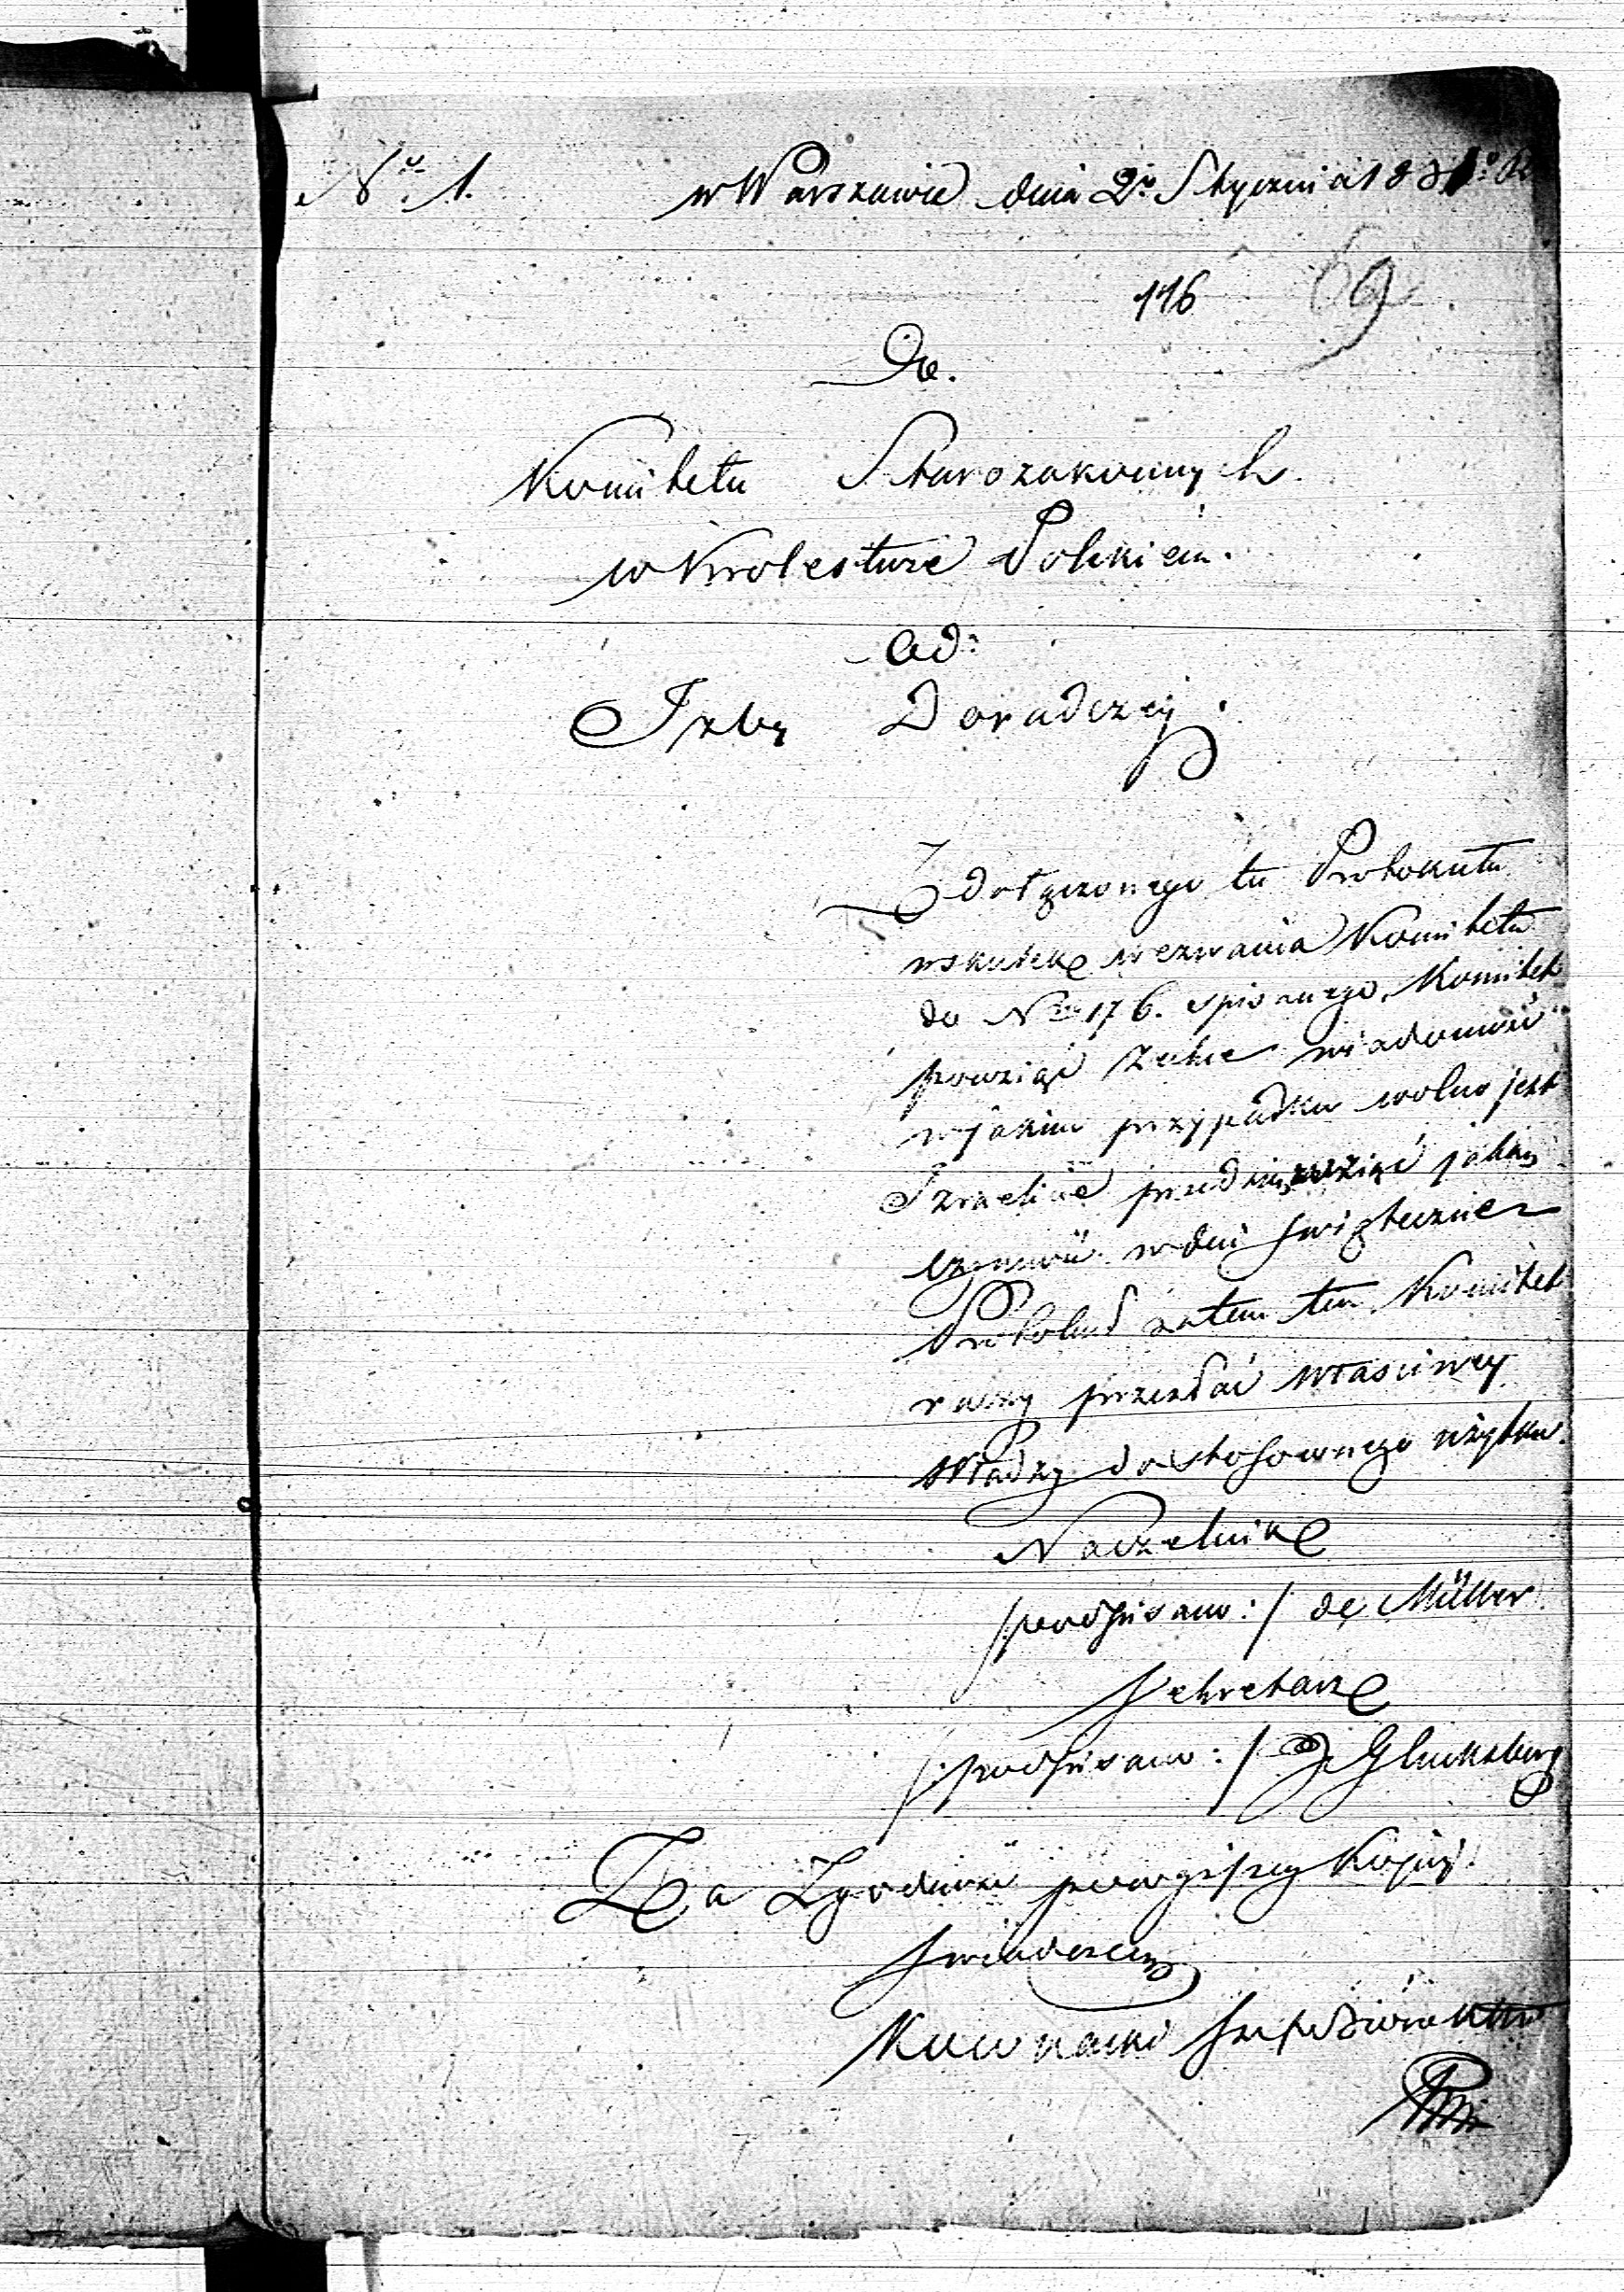 No 1. w Warszawie dnia 2go Stycznia 1831o
116 69
Do.
Komitetu Starozakonnych.
w Krolestwie Polskiem.
Od:
Izby Doradczey.
Z dołączonego tu Protokułu
w skutek wezwania Komitetu
do Nru 176. spisanego, Komitet
powziąć zechce wiadomość
w jakim przypadku wolno jest
Izraelicie przedsięwziąć jakąś
czynność w dni świąteczne
Protokuł zatem ten Komitet
raczy przesłać właściwey
Władzy do stosownego użytku.
Naczelnik
/:podpisano:/ de Müller
Sekretarz
/:podpisano:/ J Glucksberg
Za Zgodność powyższey Kopij.
świadczą